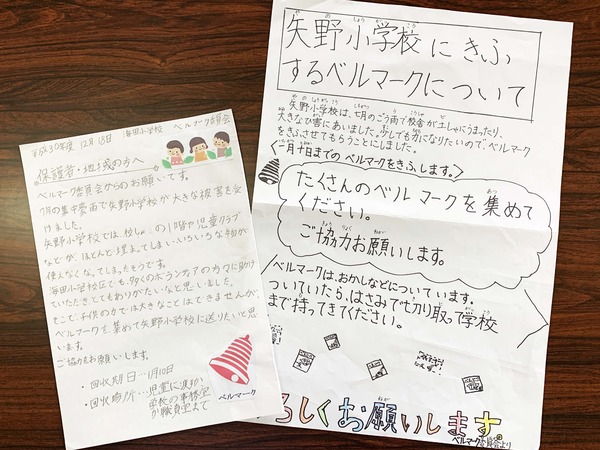 平成30年度 12月18日 海田小学校 ベルマーク委員会
保護者・地域の方へ
ベルマーク委員会からのお願いです。
7月の集中豪雨で矢野小学校が大きな被害を受
けました。
矢野小学校では、校しゃの1階や児童クラブ
などが、ほとんど埋まってしまい、いろいろな物が
使えなくなってしまったそうです。
海田小学校区でも、多くのボランティアの方々に助け
ていただきとてもありがたいなと思いました。
そこで、子供の力では大きなことはできませんが、
ベルマークを集めて矢野小学校に送りたいと思
います。
ご協力をお願いします。
・回収期日…1月10日
・回収場所…児童に渡すか
学校の事務室
か職員室まで
ベルマーク
矢野小学校にきふ
するベルマークについて
矢野小学校は、七月のごう雨で校舎が土しゃにうまったり、
大きなひ害にあいました。少しでも力になりたいので、ベルマーク
をきふさせてもらうことにしました。
一月十日までのベルマークをきふします。
たくさんのベルマークを集めて
ください。
ご協力お願いします。
ベルマークは、おかしなどについています。
ついていたら、はさみで切り取って学校
まで持ってきてください。
ろしくお願いします。
ベルマーク委員会より